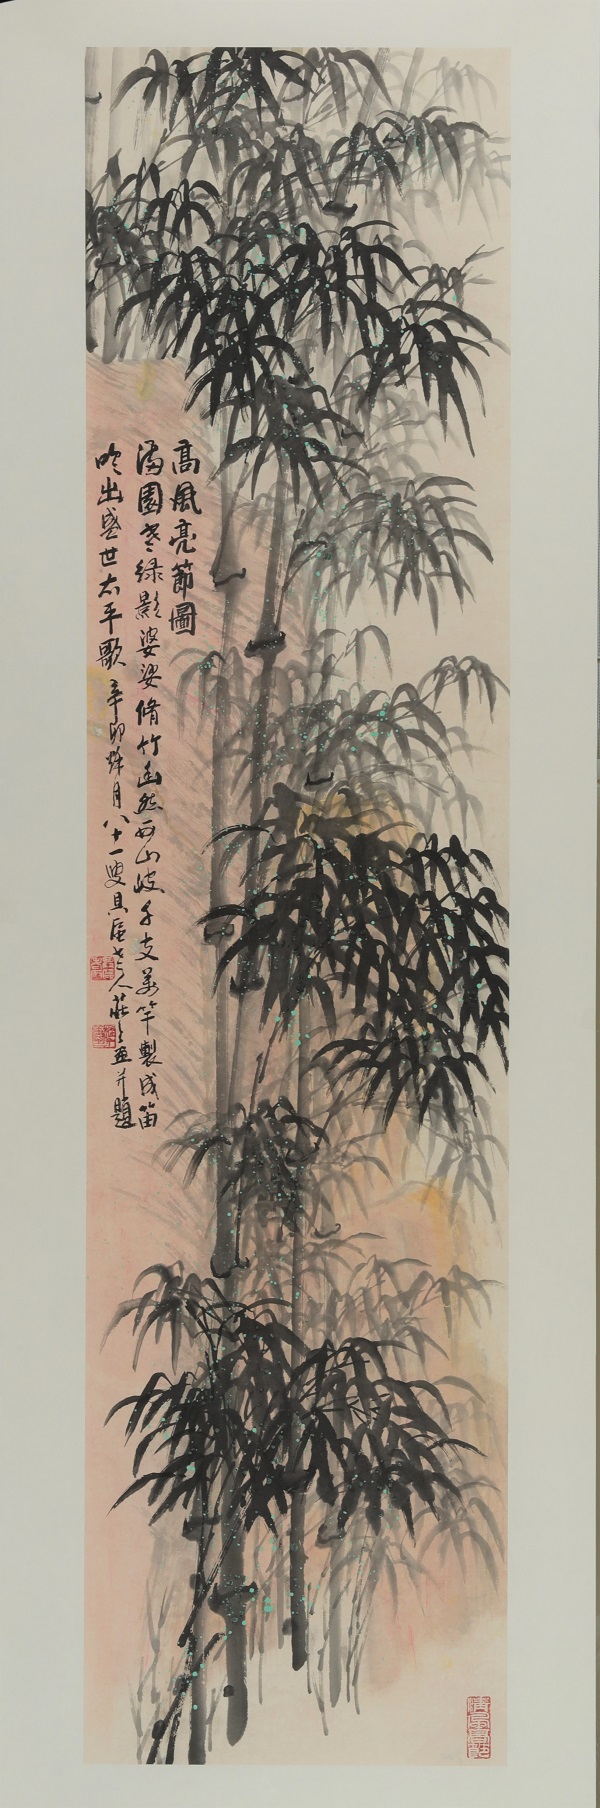 高風亮節圖
滿園老綠影婆娑脩竹幽然西山坡千支萬竿製成笛
吹出盛世太平歌 辛卯烽月八十一叟具區老人莊
畫并題